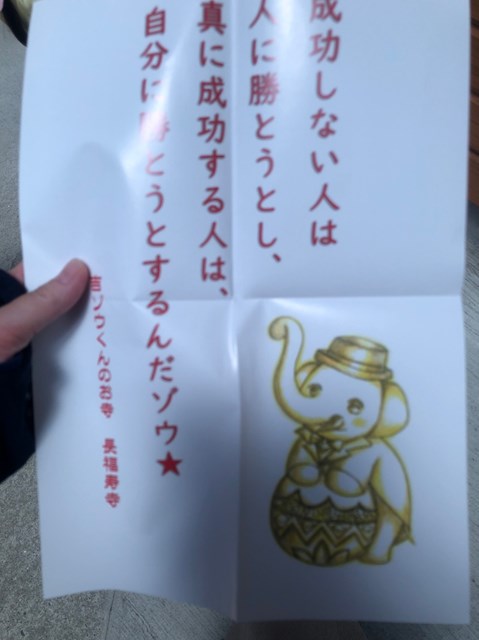 成功しない人は
人に勝とうとし、
真に成功する人は、
自分に勝とうとするんだゾウ★
吉ゾウくんのお寺 長福寿寺